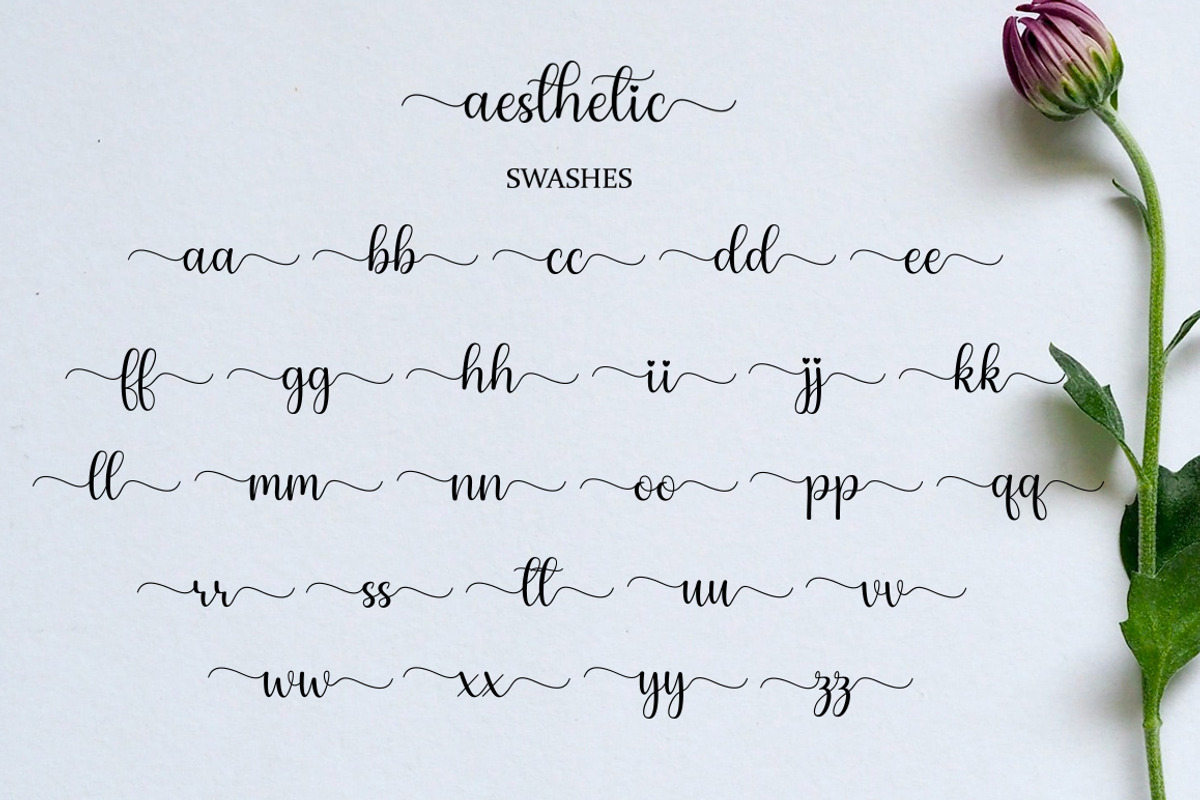 aesthetic
SWASHES
aa bb cc dd ee
ff gg hh ii jj kk
ll mm nn oo pp qq
rr ss tt uu vv
ww xx yy zz